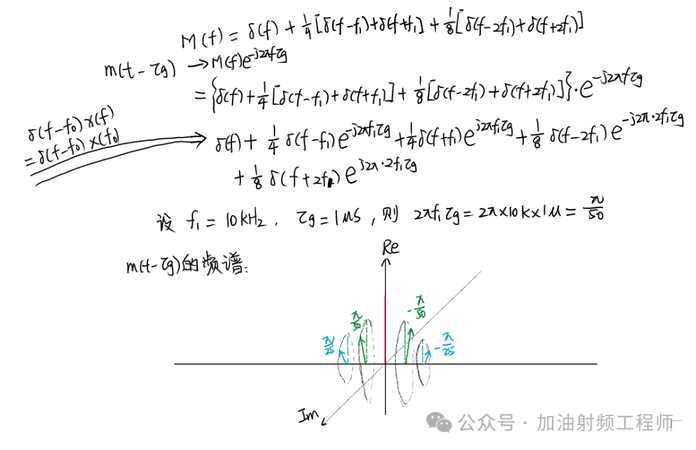 M(f) = δ(f) + 1/4[δ(f-f₁)+δ(f+f₁)] + 1/8[δ(f-2f₁)+δ(f+2f₁)]
m(t-τg) → M(f)e^-j2πfτg
= {δ(f)+1/4[δ(f-f₁)+δ(f+f₁)]+1/8[δ(f-2f₁)+δ(f+2f₁)]}·e^-j2πfτg
δ(f-f₀)x(f)
=δ(f-f₀)x(f₀)
δ(f)+1/4δ(f-f₁)e^-j2πf₁τg+1/4δ(f+f₁)e^j2πf₁τg+1/8δ(f-2f₁)e^-j2π·2f₁τg
+1/8δ(f+2f₁)e^j2π·2f₁τg
设 f₁=10kHz, τg=1μs, 则 2πf₁τg=2π×10k×1μ=π/50
m(t-τg)的频谱:
Re
π/25
π/50
-π/50
-π/25
Im
公众号·加油射频工程师